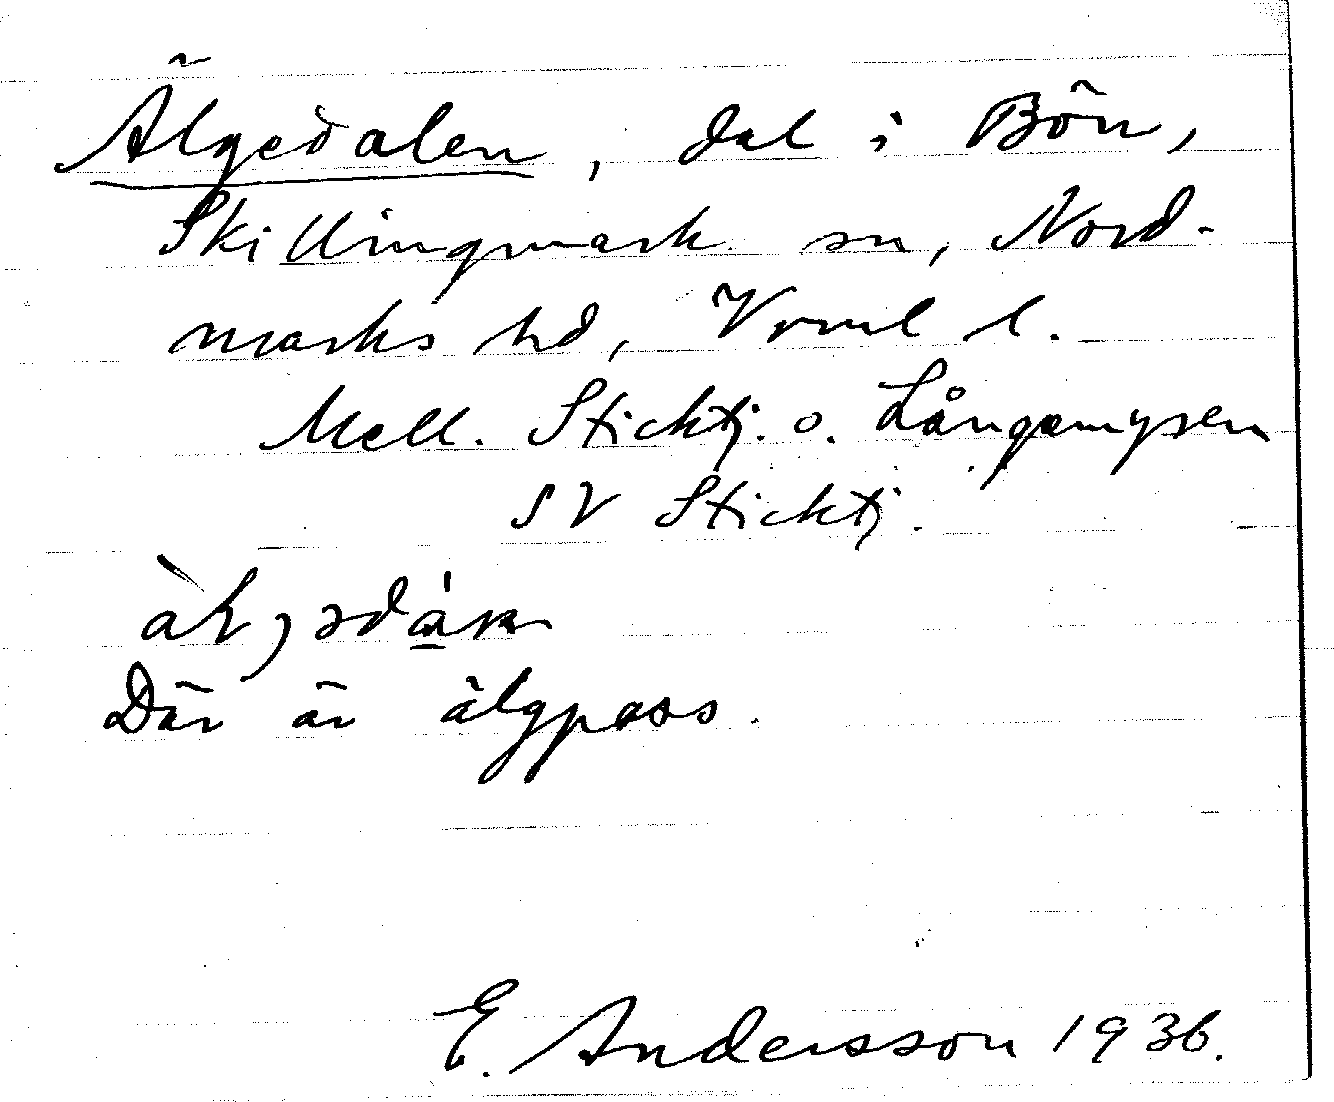 Älgedalen, dal i Bön,
Skillingmark sn, Nord-
marks hd, Vrml l.
Mell. Sticktj. o. Långemysen
SV Sticktj.
Där är älgpass.
E. Andersson 1936.